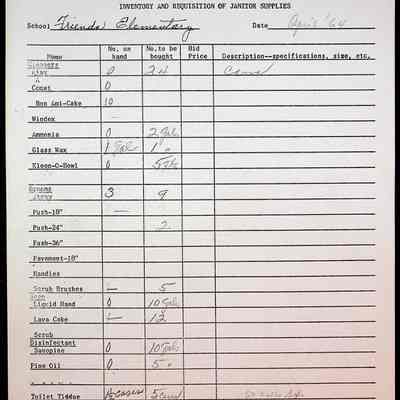 INVENTORY AND REQUISITION OF JANITOR SUPPLIES
School Friends Elementary Date April '64
Name No. on hand No. to be bought Bid Price Description--specifications, size, etc.
Cleaners
0 24 Cans
Comet 0
Bon Ami-Cake 10
Windex —
Ammonia 0 2 Gal.
Glass Wax 1 Gal. 1 "
Kleen-O-Bowl 0
Brooms
3 9
Push-18" —
Push-24" 2
Push-36"
Pavement-18"
Handles
Scrub Brushes — 5
Soap
Liquid Hand 0 10 Gals
Lava Cake — 12
Scrub
Disinfectant
Sanopine 0 10 Gals
Pine Oil 0 5 "
Toilet Tissue ½ cases 5 Cases